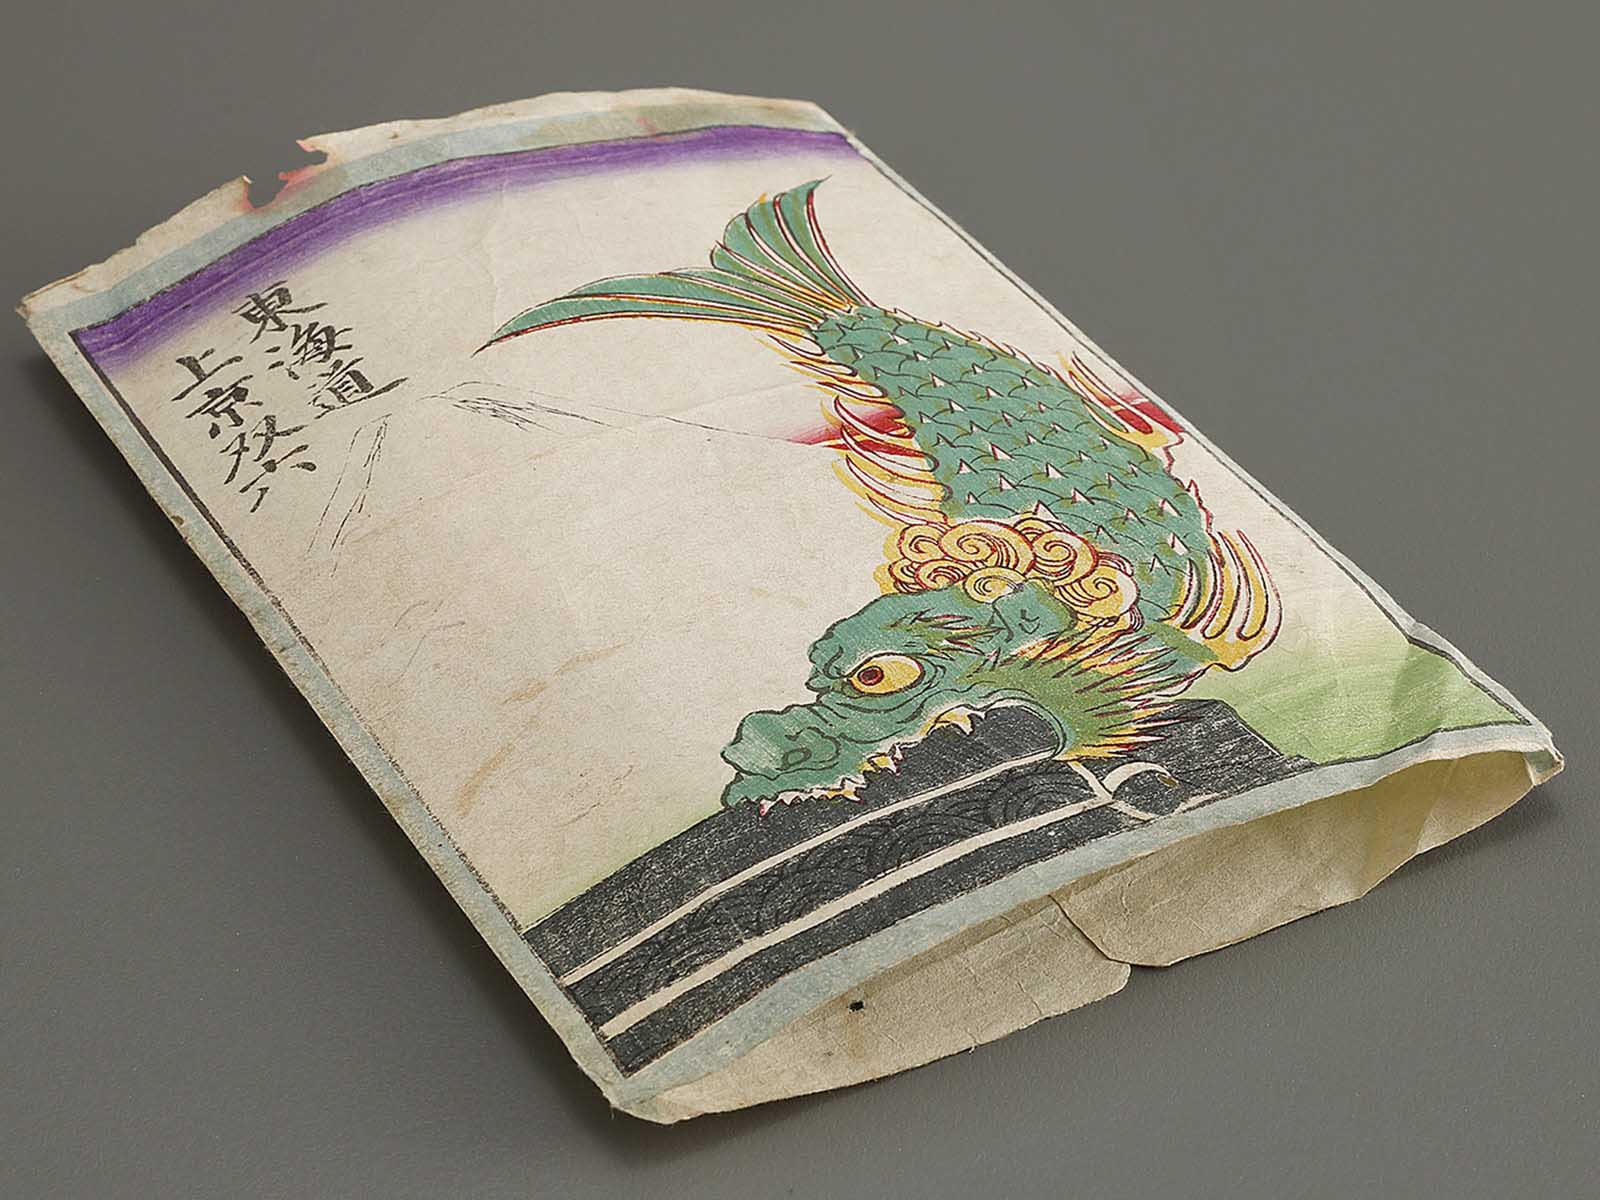 東海道
上京双六